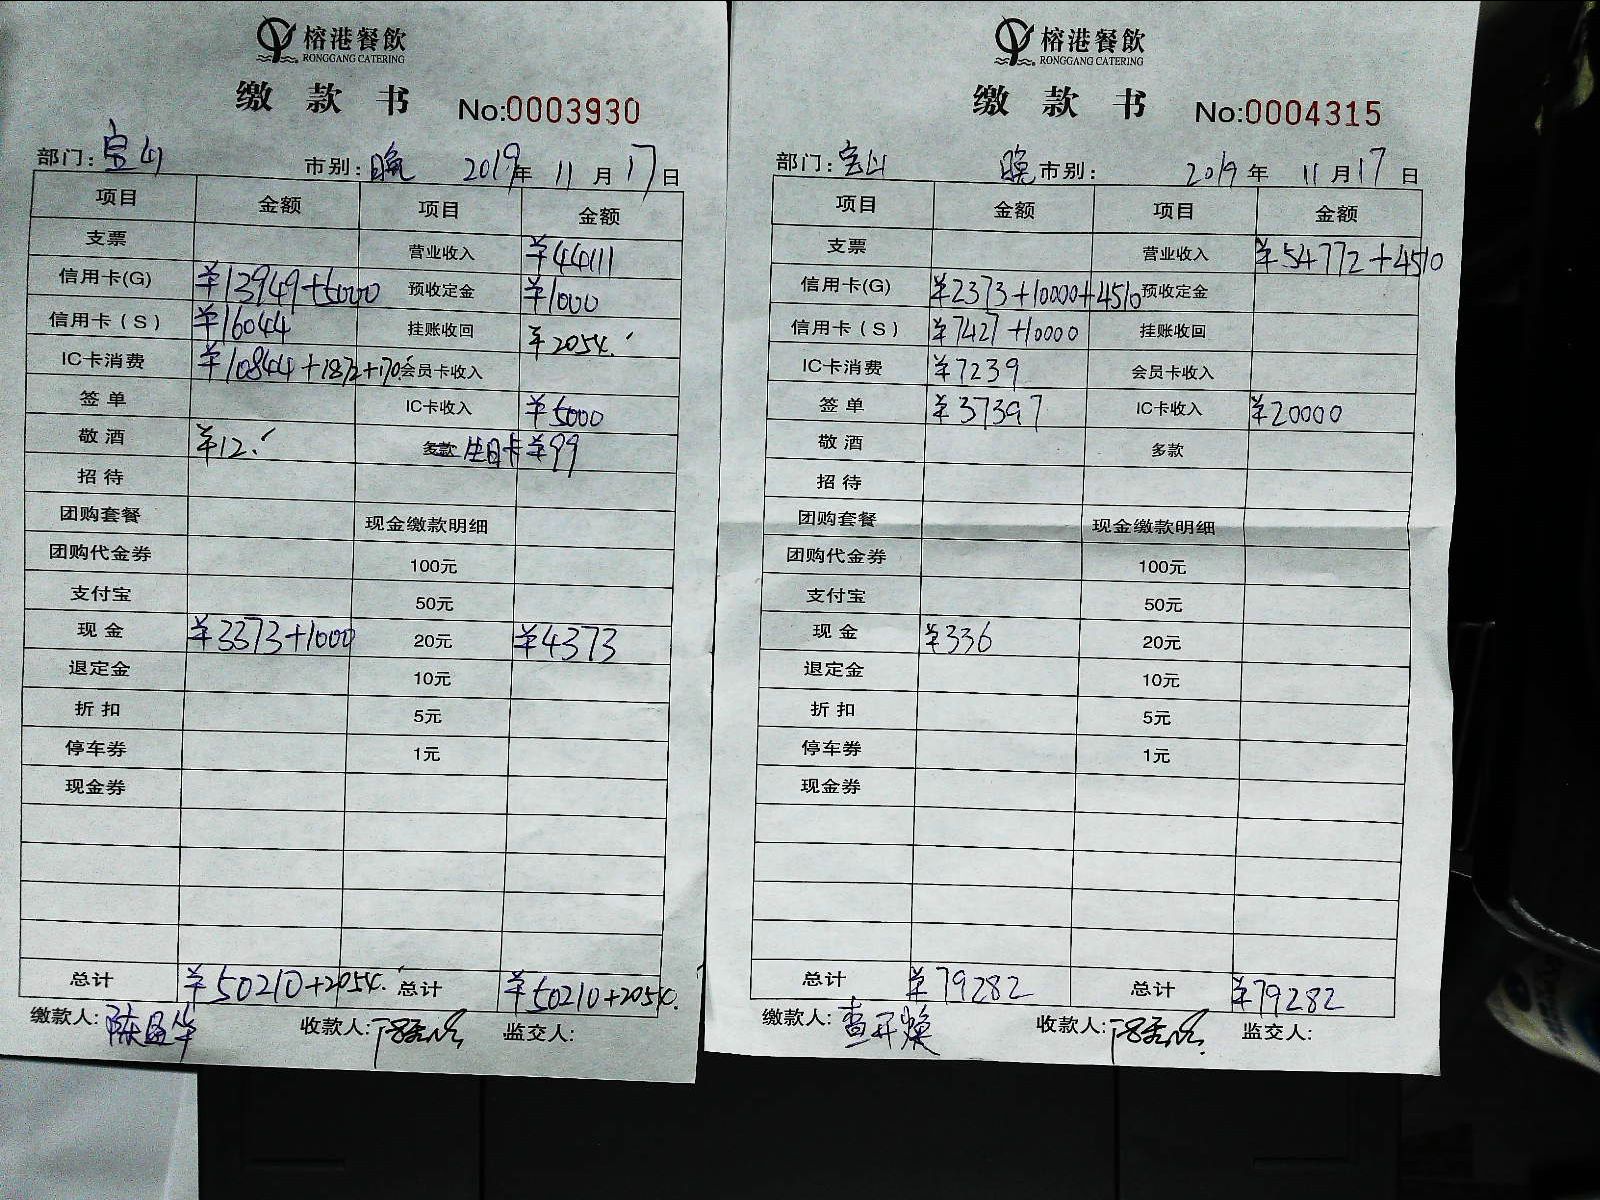 榕港餐飲
RONGGANG CATERING
缴 款 书 No:0003930
部门: 宝山 市别: 晚 2019年 11月17日
项目 金额 项目 金额
支票 营业收入 ¥44111
信用卡(G) ¥13949+5000 预收定金 ¥1000
信用卡(S) ¥16044 挂账收回 ¥2054.
IC卡消费 ¥10844+1872+170. 会员卡收入
签单 IC卡收入 ¥5000
敬酒 ¥12. 多款 生日卡 ¥99
招待
团购套餐 现金缴款明细
团购代金券 100元
支付宝 50元
现金 ¥3373+1000 20元 ¥4373
退定金 10元
折扣 5元
停车券 1元
现金券
总计 ¥50210+2054. 总计 ¥50210+2054.
缴款人: 收款人: 监交人:
榕港餐飲
RONGGANG CATERING
缴 款 书 No:0004315
部门: 宝山 晚 市别: 2019年 11月17日
项目 金额 项目 金额
支票 营业收入 ¥54772+4510
信用卡(G) ¥2373+10000+4510 预收定金
信用卡(S) ¥7427+10000 挂账收回
IC卡消费 ¥7239 会员卡收入
签单 ¥37397 IC卡收入 ¥20000
敬酒 多款
招待
团购套餐 现金缴款明细
团购代金券 100元
支付宝 50元
现金 ¥336 20元
退定金 10元
折扣 5元
停车券 1元
现金券
总计 ¥79282 总计 ¥79282
缴款人: 查开焕 收款人: 监交人: